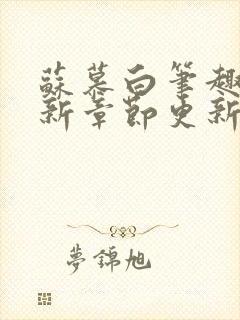 蘇慕白筆趣
新章節更新
夢錦旭